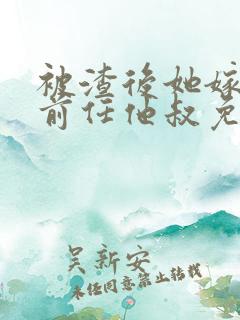 被渣後她嫁
前任他叔免
吴新安
未任同意禁止转载